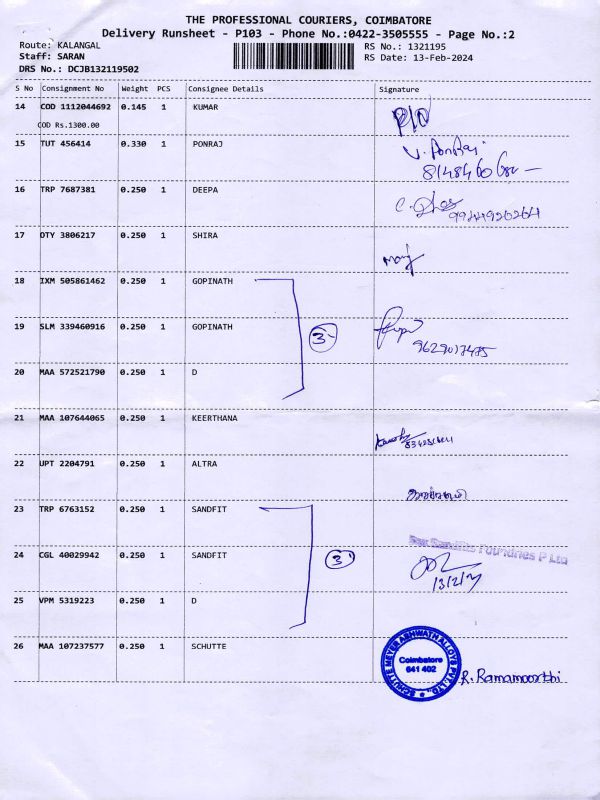 THE PROFESSIONAL COURIERS, COIMBATORE
Delivery Runsheet - P103 - Phone No.:0422-3505555 - Page No.:2
Route: KALANGAL
RS No.: 1321195
Staff: SARAN
RS Date: 13-Feb-2024
DRS No.: DCJB132119502
S No Consignment No Weight PCS Consignee Details Signature
14 COD 1112044692 0.145 1 KUMAR
COD Rs.1300.00
15 TUT 456414 0.330 1 PONRAJ
V. PonRaj
16 TRP 7687381 0.250 1 DEEPA
17 DTY 3806217 0.250 1 SHIRA
18 IXM 505861462 0.250 1 GOPINATH
19 SLM 339460916 0.250 1 GOPINATH
3
9629017485
20 MAA 572521790 0.250 1 D
21 MAA 107644065 0.250 1 KEERTHANA
22 UPT 2204791 0.250 1 ALTRA
23 TRP 6763152 0.250 1 SANDFIT
Sandfits Foundries P Ltd
24 CGL 40029942 0.250 1 SANDFIT
3
13/2/24
25 VPM 5319223 0.250 1 D
26 MAA 107237577 0.250 1 SCHUTTE
SCHUTTE MEYER ASHWATH ALLOYS PVT. LTD.
Coimbatore
641 402
R. Ramamoorthi